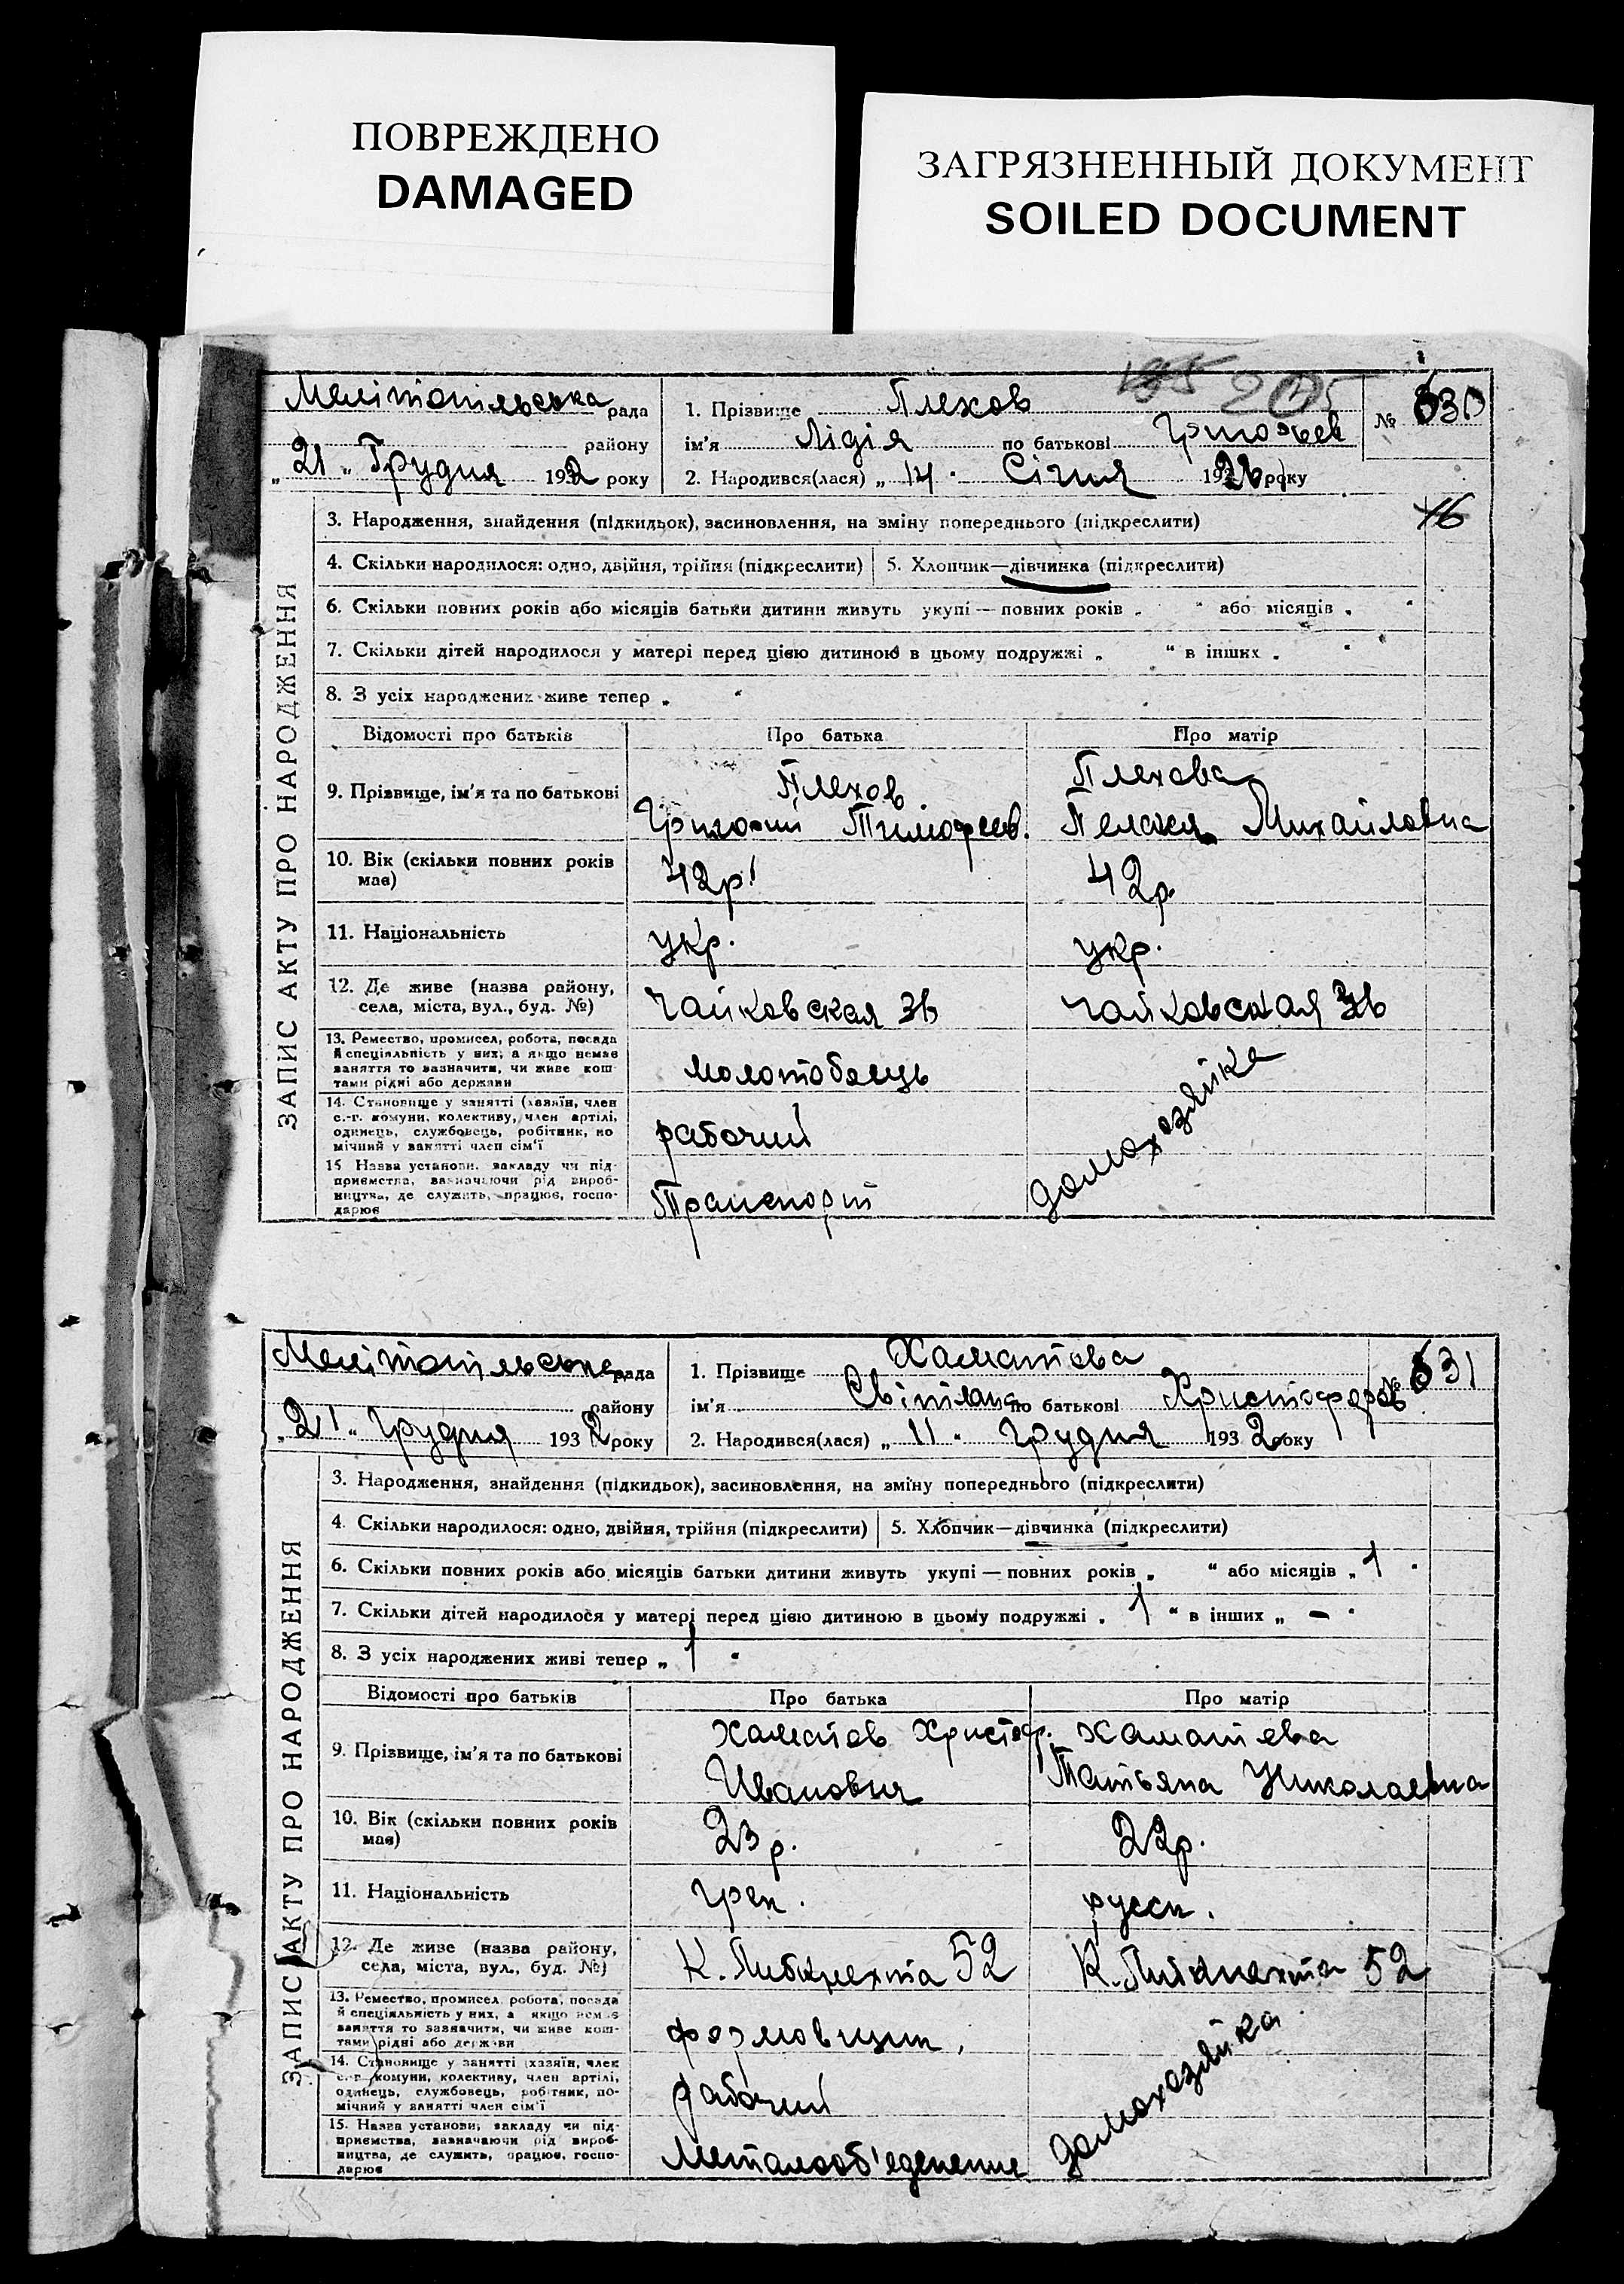 ПОВРЕЖДЕНО
DAMAGED
ЗАГРЯЗНЕННЫЙ ДОКУМЕНТ
SOILED DOCUMENT
205
Мелітопільська рада
району
„21„ Грудня 1932 року
1. Прізвище Плехов
ім'я Лідія по батькові
2. Народився(лася) „14" Січня року
№ 630
16
ЗАПИС АКТУ ПРО НАРОДЖЕННЯ
3. Народження, знайдення (підкидьок), засиновлення, на зміну попереднього (підкреслити)
4. Скільки народилося: одно, двійня, трійня (підкреслити) 5. Хлопчик—дівчинка (підкреслити)
6. Скільки повних років або місяців батьки дитини живуть укупі — повних років „ " або місяців „ "
7. Скільки дітей народилося у матері перед цією дитиною в цьому подружжі „ " в інших „ "
8. З усіх народжених живе тепер „ "
Відомості про батьків Про батька Про матір
9. Прізвище, ім'я та по батькові Плехов Плехова
Григорий Тимофеев. Пелагея Михайловна
10. Вік (скільки повних років має) 42р. 42р.
11. Національність укр. укр.
12. Де живе (назва району, села, міста, вул., буд. №) Чайковская Чайковская
13. Ремество, промисел, робота, посада й спеціяльність у них, а якщо немає заняття то зазначити, чи живе коштами рідні або держави молотобоець
14. Становище у занятті (хазяїн, член с.-г. комуни, колективу, член артілі, одинець, службовець, робітник, помічний у занятті член сім'ї рабочий
15 Назва установи, закладу чи підприємства, зазначаючи рід виробництва, де служить, працює, господарює Транспорт
домохозяйка
Мелітопільська рада
району
„21„ Грудня 1932 року
1. Прізвище Хаматова
ім'я Світлана по батькові Христофоров
2. Народився(лася) „11" Грудня 1932 року
№ 631
ЗАПИС АКТУ ПРО НАРОДЖЕННЯ
3. Народження, знайдення (підкидьок), засиновлення, на зміну попереднього (підкреслити)
4. Скільки народилося: одно, двійня, трійня (підкреслити) 5. Хлопчик—дівчинка (підкреслити)
6. Скільки повних років або місяців батьки дитини живуть укупі — повних років „ " або місяців „1"
7. Скільки дітей народилося у матері перед цією дитиною в цьому подружжі „1" в інших „ – "
8. З усіх народжених живі тепер „1"
Відомості про батьків Про батька Про матір
9. Прізвище, ім'я та по батькові Хаматов Христоф. Хаматова
Иванович Татьяна Николаевна
10. Вік (скільки повних років має) 23р. 22р.
11. Національність грек. русск.
12. Де живе (назва району, села, міста, вул., буд. №) К. Либкнехта 52 К. Либкнехта 52
13. Ремество, промисел, робота, посада й спеціяльність у них, а якщо немає заняття то зазначити, чи живе коштами рідні або держави формовщик
14. Становище у занятті (хазяїн, член с.-г. комуни, колективу, член артілі, одинець, службовець, робітник, помічний у занятті член сім'ї рабочий
15. Назва установи, закладу чи підприємства, зазначаючи рід виробництва, де служить, працює, господарює Металооб'еденение
домохозяйка